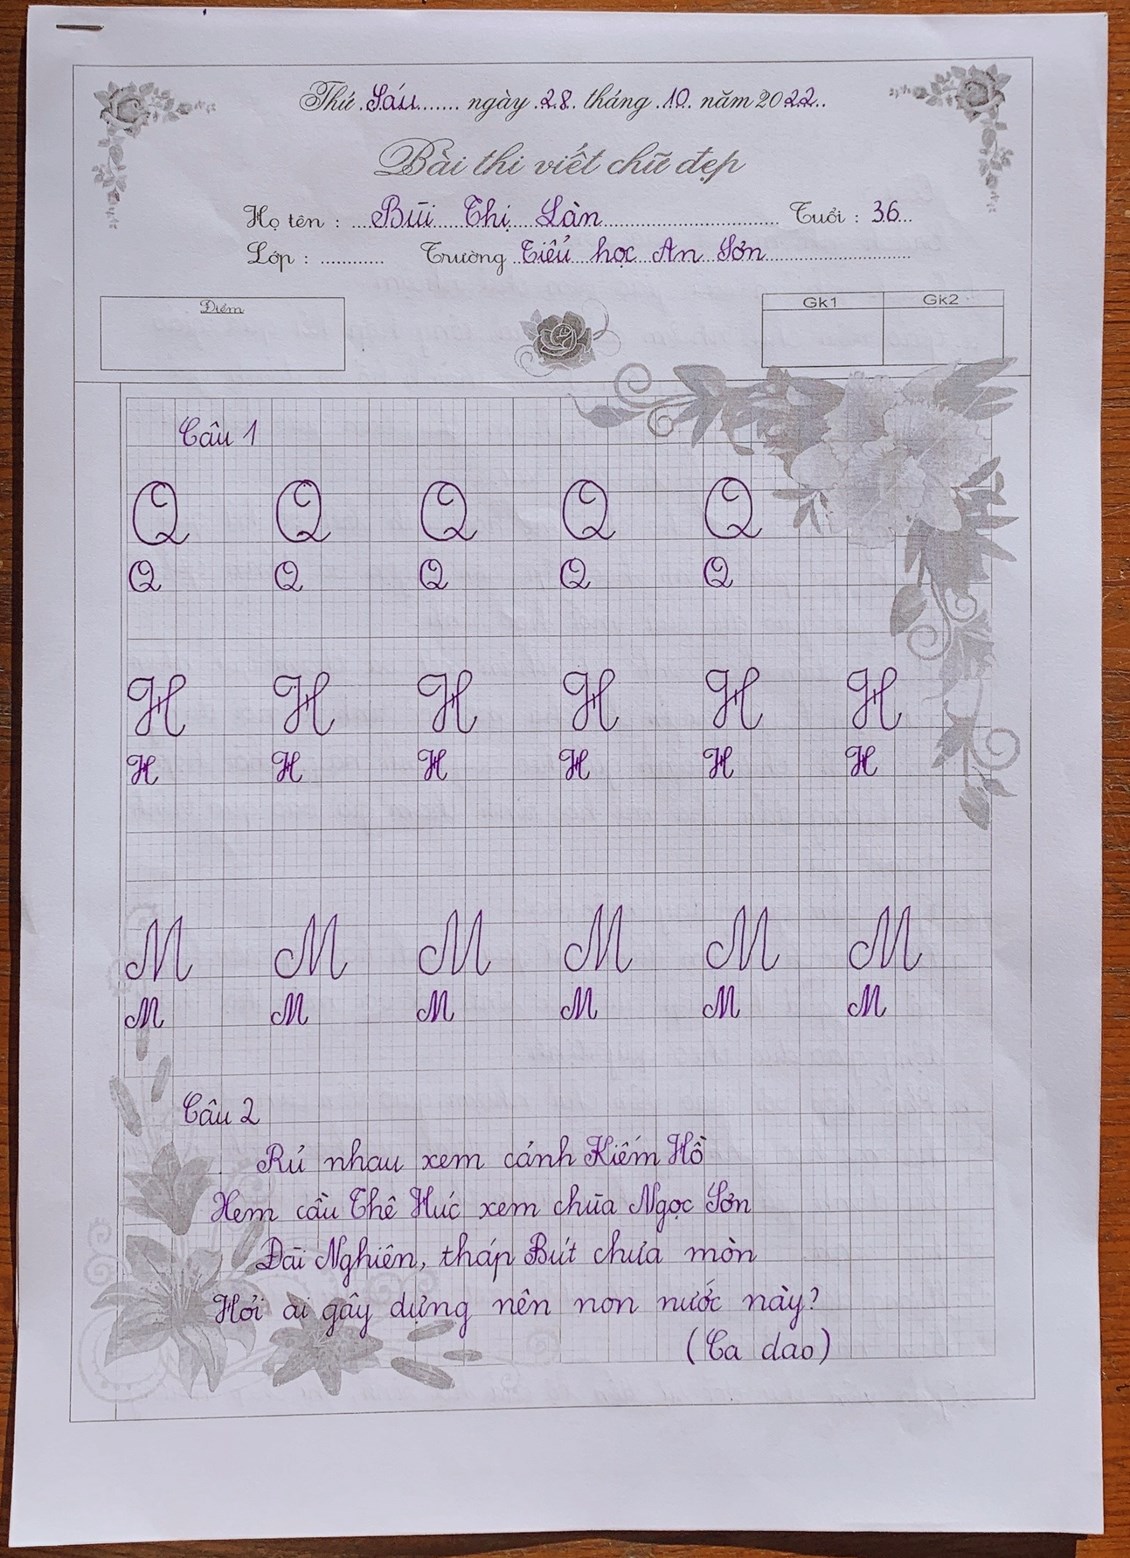 Thứ Sáu ngày 28 tháng 10 năm 2022
Bài thi viết chữ đẹp
Họ tên : Bùi Thị Làn Tuổi : 36
Lớp : Trường Tiểu học An Sơn
Điểm Gk1 Gk2
Câu 1
Q Q Q Q Q
Q Q Q Q Q
H H H H H H
H H H H H H
M M M M M M
M M M M M M
Câu 2
Rủ nhau xem cảnh Kiếm Hồ
Xem cầu Thê Húc xem chùa Ngọc Sơn
Đài Nghiên, tháp Bút chưa mòn
Hỏi ai gây dựng nên non nước này?
(Ca dao)